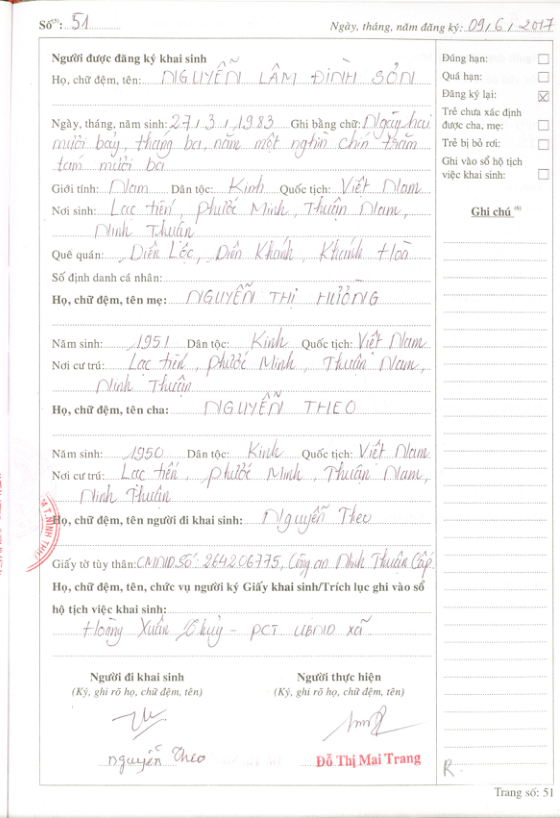 Số⁽⁵⁾: 51
Ngày, tháng, năm đăng ký: 09/6/2017
Người được đăng ký khai sinh
Họ, chữ đệm, tên: NGUYỄN LÂM ĐÌNH SƠN
Ngày, tháng, năm sinh: 27/3/1983 Ghi bằng chữ: Ngày hai
mươi bảy, tháng ba, năm một nghìn chín trăm
tám mươi ba
Giới tính: Nam Dân tộc: Kinh Quốc tịch: Việt Nam
Nơi sinh: Lạc tiến, Phước Minh, Thuận Nam,
Ninh Thuận
Quê quán: Diên Lộc, Diên Khánh, Khánh Hoà
Số định danh cá nhân:
Họ, chữ đệm, tên mẹ: NGUYỄN THỊ HƯỜNG
Năm sinh: 1951 Dân tộc: Kinh Quốc tịch: Việt Nam
Nơi cư trú: Lạc tiến, Phước Minh, Thuận Nam,
Ninh Thuận
Họ, chữ đệm, tên cha: NGUYỄN THEO
Năm sinh: 1950 Dân tộc: Kinh Quốc tịch: Việt Nam
Nơi cư trú: Lạc tiến, Phước Minh, Thuận Nam,
Ninh Thuận
Họ, chữ đệm, tên người đi khai sinh: Nguyễn Theo
Giấy tờ tùy thân: CMND Số: 264206775, Công an Ninh Thuận Cấp.
Họ, chữ đệm, tên, chức vụ người ký Giấy khai sinh/Trích lục ghi vào sổ
hộ tịch việc khai sinh:
Hoàng Xuân - PCT UBND xã
Người đi khai sinh
(Ký, ghi rõ họ, chữ đệm, tên)
Nguyễn Theo
Người thực hiện
(Ký, ghi rõ họ, chữ đệm, tên)
Đỗ Thị Mai Trang
Đúng hạn:
Quá hạn:
Đăng ký lại: ☒
Trẻ chưa xác định
được cha, mẹ:
Trẻ bị bỏ rơi:
Ghi vào sổ hộ tịch
việc khai sinh:
Ghi chú ⁽⁶⁾
R.
Trang số: 51